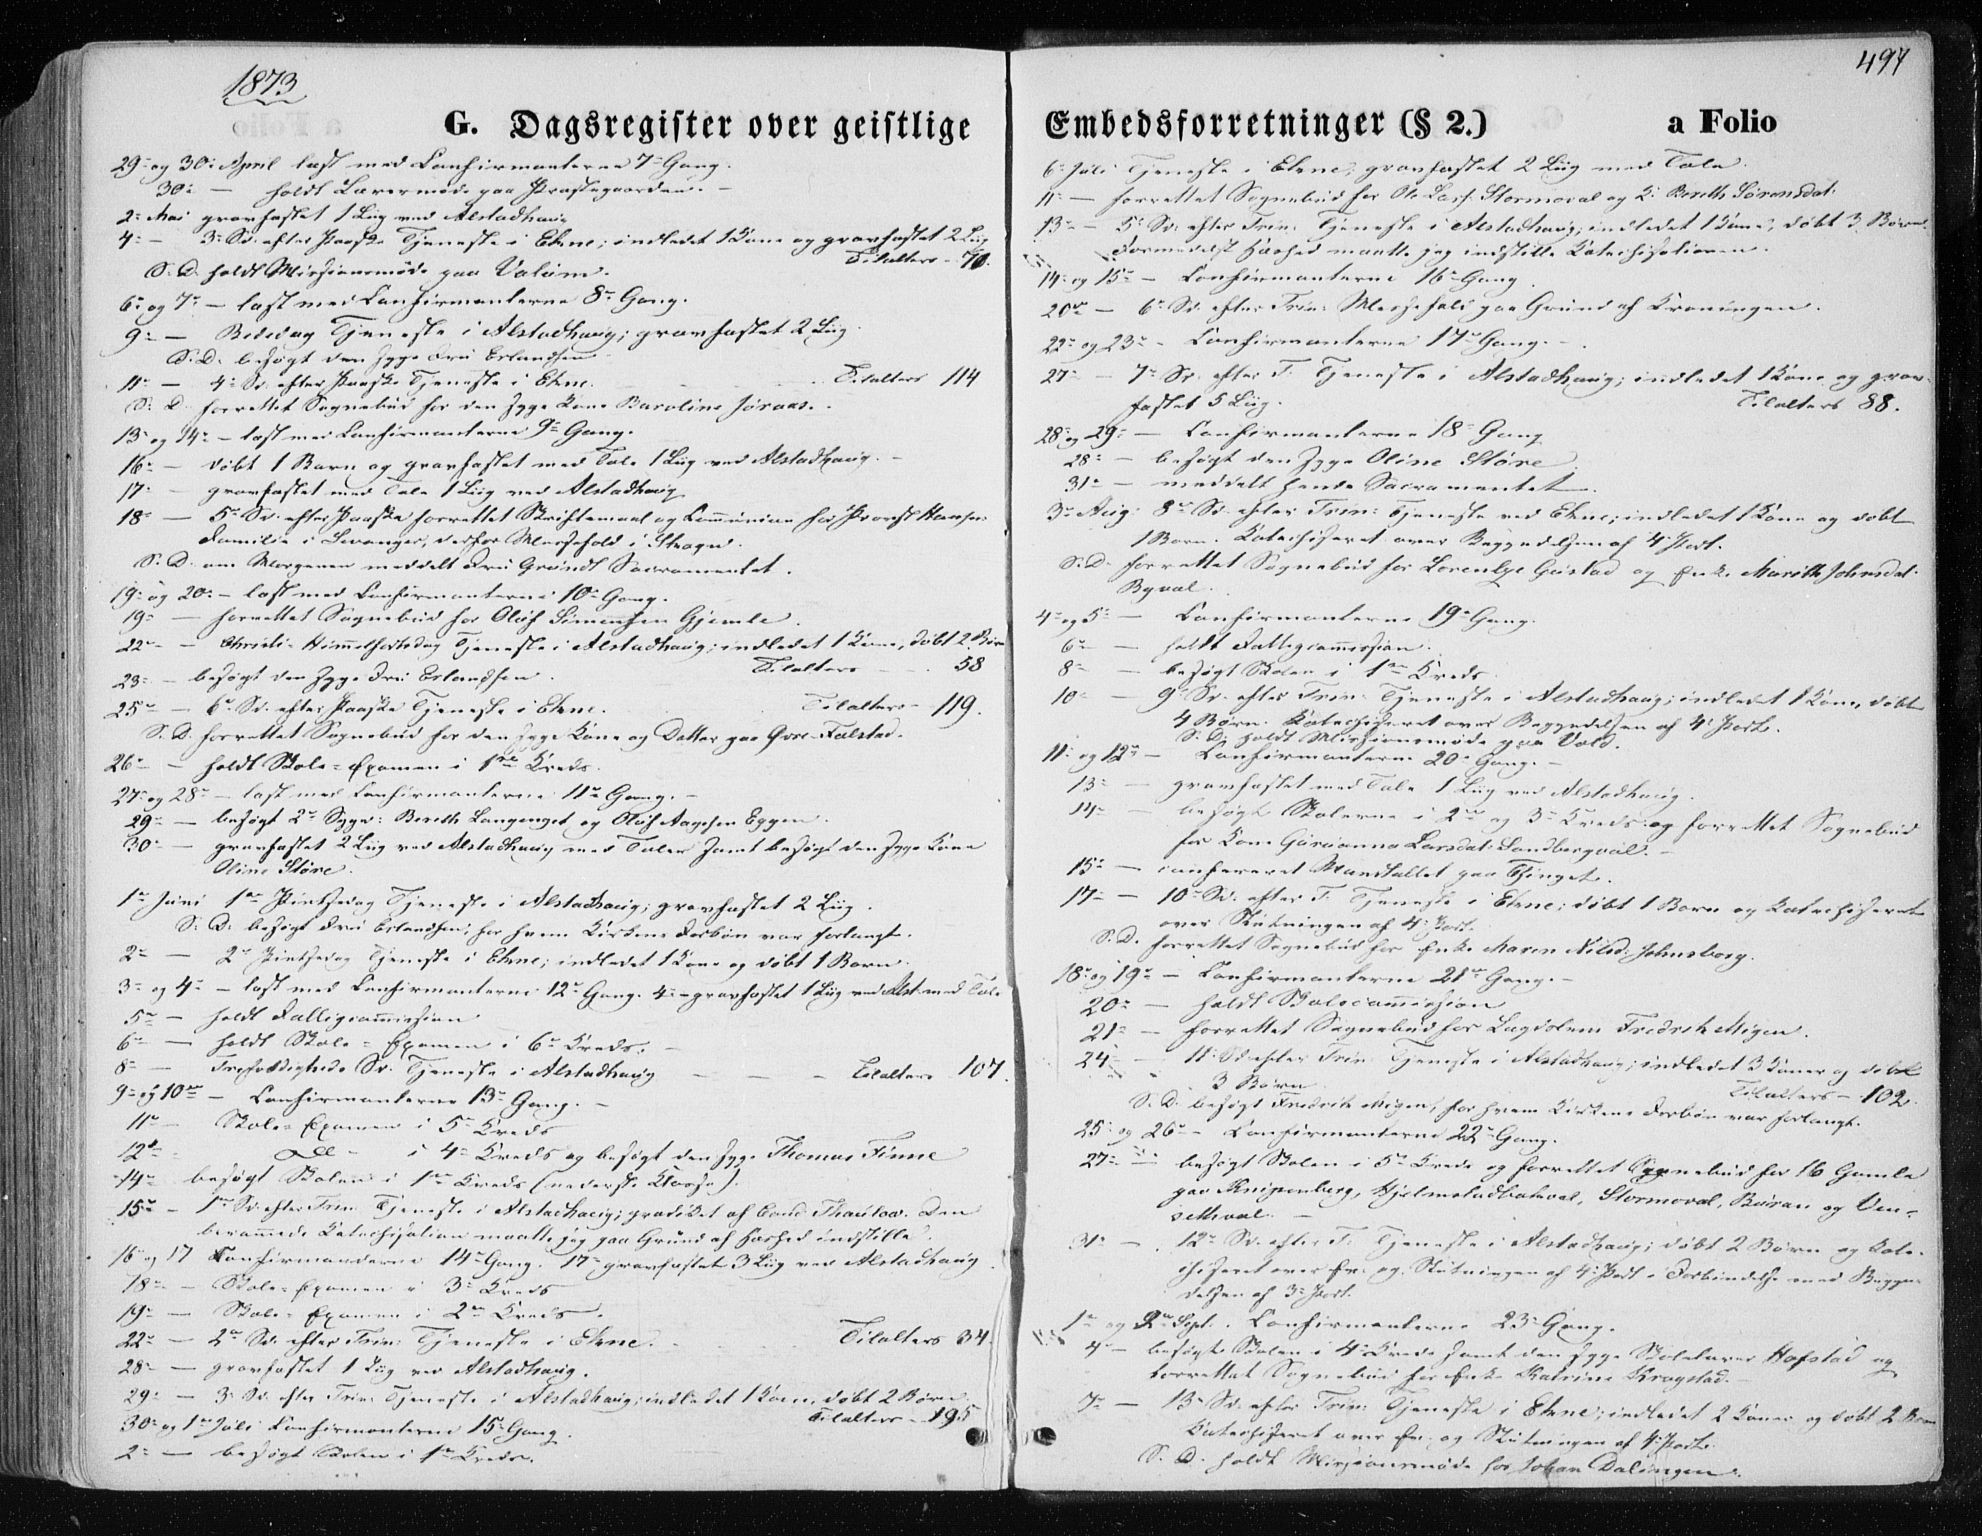 1873
G. Dagsregister over geistlige
29 og 30: April læst med Confirmanterne 7de Gang.
30: — holdt Lærermøde paa Præstegaarden. —
2: Mai gravfæstet 1 Liig ved Alstadhaug
4: — 3: Sd. efter Paaske Tjeneste i Ekne; indledet 1 Kone og gravfæstet 2 Liig
Tilalters - 70.
S. D. holdt Missionsmøde paa Valum.
6: og 7: — læst med Confirmanterne 8de Gang.
9: — Bededag Tjeneste i Alstadhaug; gravfæstet 2 Liig.
S. D. besøgt den syge Fru Erlandsen
11: — 4: Sd. efter Paaske Tjeneste i Ekne. Tilalters 114
S: D. forrettet Sognebud for den syge Kone Baroline Joraas.
13 og 14: — læst med Confirmanterne 9de Gang.
16: — døbt 1 Barn og gravfæstet med Tale 1 Liig ved Alstadhaug. —
17: — gravfæstet med Tale 1 Liig ved Alstadhaug
18: — 5te Sd. efter Paaske forrettet Skriftemaal og Communion hos Provst Hansens
Familie i Levanger, derfor Messefald i Skogn.
S. D. om Morgenen meddelt Fru Grøndt Sacramentet.
19: og 20: — læst med Confirmanterne 10de Gang.
19: — forrettet Sognebud for Oluf Simensen Gjemle.
22: — Christi-Himmelfartsdag Tjeneste i Alstadhaug; indledet 1 Kone, døbt 2 Børn
Tilalters 58
23: — besøgt den syge Fru Erlandsen.
25: — 6: Sd. efter Paaske Tjeneste i Ekne. Tilalters - 119.
S. D. forrettet Sognebud for den syge Kone og Datter paa Øvre-Falstad.
26: — holdt Skole-Examen i 1ste Kreds.
27 og 28: — læst med Confirmanterne 11te Gang. —
29: — besøgt 2de Syge: Bereth Langenget og Oluf Aagesen Eggen.
30: — gravfæstet 2 Liig ved Alstadhaug med Taler samt besøgt den syge Kone
Oline Støre.
1ste Juni 1ste Pintsedag Tjeneste i Alstadhaug; gravfæstet 2 Liig.
S: D: besøgt Fru Erlandsen, for hvem Kirkens Forbøn var forlangt.
2: — 2: Pintsedag Tjeneste i Ekne; indledet 1 Kone og døbt 1 Barn.
3: og 4: — læst med Confirmanterne 12te Gang. 4: — gravfæstet 1 Liig ved Alst. med Tale
5: — holdt Fattigcommission
6: — holdt Skole-Examen i 6te Kreds. —
8: — Trefoldigheds Sd. Tjeneste i Alstadhaug — — Tilalters 107.
9: og 10: — Confirmanterne 13: Gang. —
11: — Skole-Examen i 5te Kreds
12: — do - i 4: Kreds og besøgt den syge Thomas Finne
14: besøgt Skolen i 1ste Kreds (nederste Klasse).
15: — 1ste Sd. efter Trin: Tjeneste i Alstadhaug; prædiket af Cand. Thaulow. Den
berammede Katechisation maatte jeg paa Grund af Hæshed indstille.
16: og 17 Confirmanderne 14: Gang. 17: gravfæstet 3 Liig ved Alstadhaug
18: — Skole-Examen i 3: Kreds
19: — Skole-Examen i 2: Kreds.
22: — 2: Sd. efter Trin: Tjeneste i Ekne. Tilalters 34.
28: — gravfæstet 1 Liig ved Alstadhaug.
29: — 3: Sd. efter Trin: Tjeneste i Alstadhaug; indledet 1 Kone, døbt 2 Børn.
Tilalters - 195
30: og 1ste Juli Confirmanterne 15: Gang.
2: — besøgt Skolen i 1ste Kreds.
497
Embedsforretninger (§ 2.) a Folio
6: Juli Tjeneste i Ekne, gravfæstet 2 Liig med Tale.
11: — forrettet Sognebud for Ole Lars: Stormoval og K: Bereth Sørensdat.
13: — 5: Sd. efter Trin: Tjeneste i Alstadhaug; indledet 1 Kone, døbt 3 Børn.
Formedelst Hæshed maatte jeg indstille Katechisationen.
14: og 15: — Confirmanterne 16: Gang.
20: — 6: Sd. efter Trin: Messefald paa Grund af Kroningen.
22: og 23: — Confirmanterne 17: Gang. —
27: — 7: Sd. efter T. Tjeneste i Alstadhaug; indledet 1 Kone og grav-
fæstet 5 Liig. Tilalters 88.
28: og 29: — Confirmanterne 18: Gang
28: — besøgt den syge Oline Støre
31: — meddelt hende Sacramentet.
3: Aug: 8: Sd. efter Trin: Tjeneste ved Ekne; indledet 1 Kone og døbt
1 Barn. Katechiseret over Begyndelsen af 4: Part.
S. D. forrettet Sognebud for Lorentze Gustad og Enke Mareth Johnsdat.
Byval.
4: og 5: — Confirmanterne 19: Gang.
6: — holdt Fattigcommission.
8: — besøgt Skolen i 1ste Kreds.
10: — 9: Sd. efter Trin: Tjeneste i Alstadhaug; indledet 1 Kone, døbt
4 Børn. Katechiseret over Begyndelsen af 4: Part.
S: D: holdt Missionsmøde paa Vold.
11: og 12: — Confirmanterne 20: Gang. —
13: — gravfæstet med Tale 1 Liig ved Alstadhaug.
14: — besøgt Skolerne i 2: og 3: Kreds og forrettet Sognebud
for Kone Guruanna Larsdat: Sundbergval. —
15: — confereret Mandtallet paa Thinget.
17: — 10: Sd. efter T. Tjeneste i Ekne; døbt 1 Barn og Katechiseret
over Slutningen af 4: Part.
S. D. forrettet Sognebud for Enke Maren Nilsd: Johnsborg.
18: og 19: — Confirmanterne 21: Gang. —
20: — holdt Skolecommission
21: — forrettet Sognebud for Lægdslem Fredrik Migen.
24: — 11: Sd. efter Trin: Tjeneste i Alstadhaug; indledet 3 Koner og døbt
3 Børn. Tilalters — 102.
S. D. besøgt Fredrik Migen, for hvem Kirkens Forbøn var forlangt.
25: og 26: — Confirmanterne 22: Gang.
27: — besøgt Skolen i 5: Kreds og forrettet Sognebud for 16 Gamle
paa Knipenberg, Hjelmstadbakval, Stormoval, Buran og Ven-
sethval. —
31: — 12: Sd. efter T. Tjeneste i Alstadhaug; døbt 2 Børn og Kate-
chiseret over Fr. og Slutningen af 4: Part i Forbindelse med Begyn-
delsen af 3: Part.
1: og 2: Sept. Confirmanterne 23: Gang.
4: — besøgt Skolen i 4: Kreds samt den syge Skolelærer Hofstad og
forrettet Sognebud for Enke Katrine Kragstad. —
7: — 13: Sd. efter Trin: Tjeneste i Ekne; indledet 2 Koner og døbt 2 Børn
Katechiseret over Fr. og Slutningen af 4: Part.
S. D. holdt Missionsmøde hos Johan Dalingen.